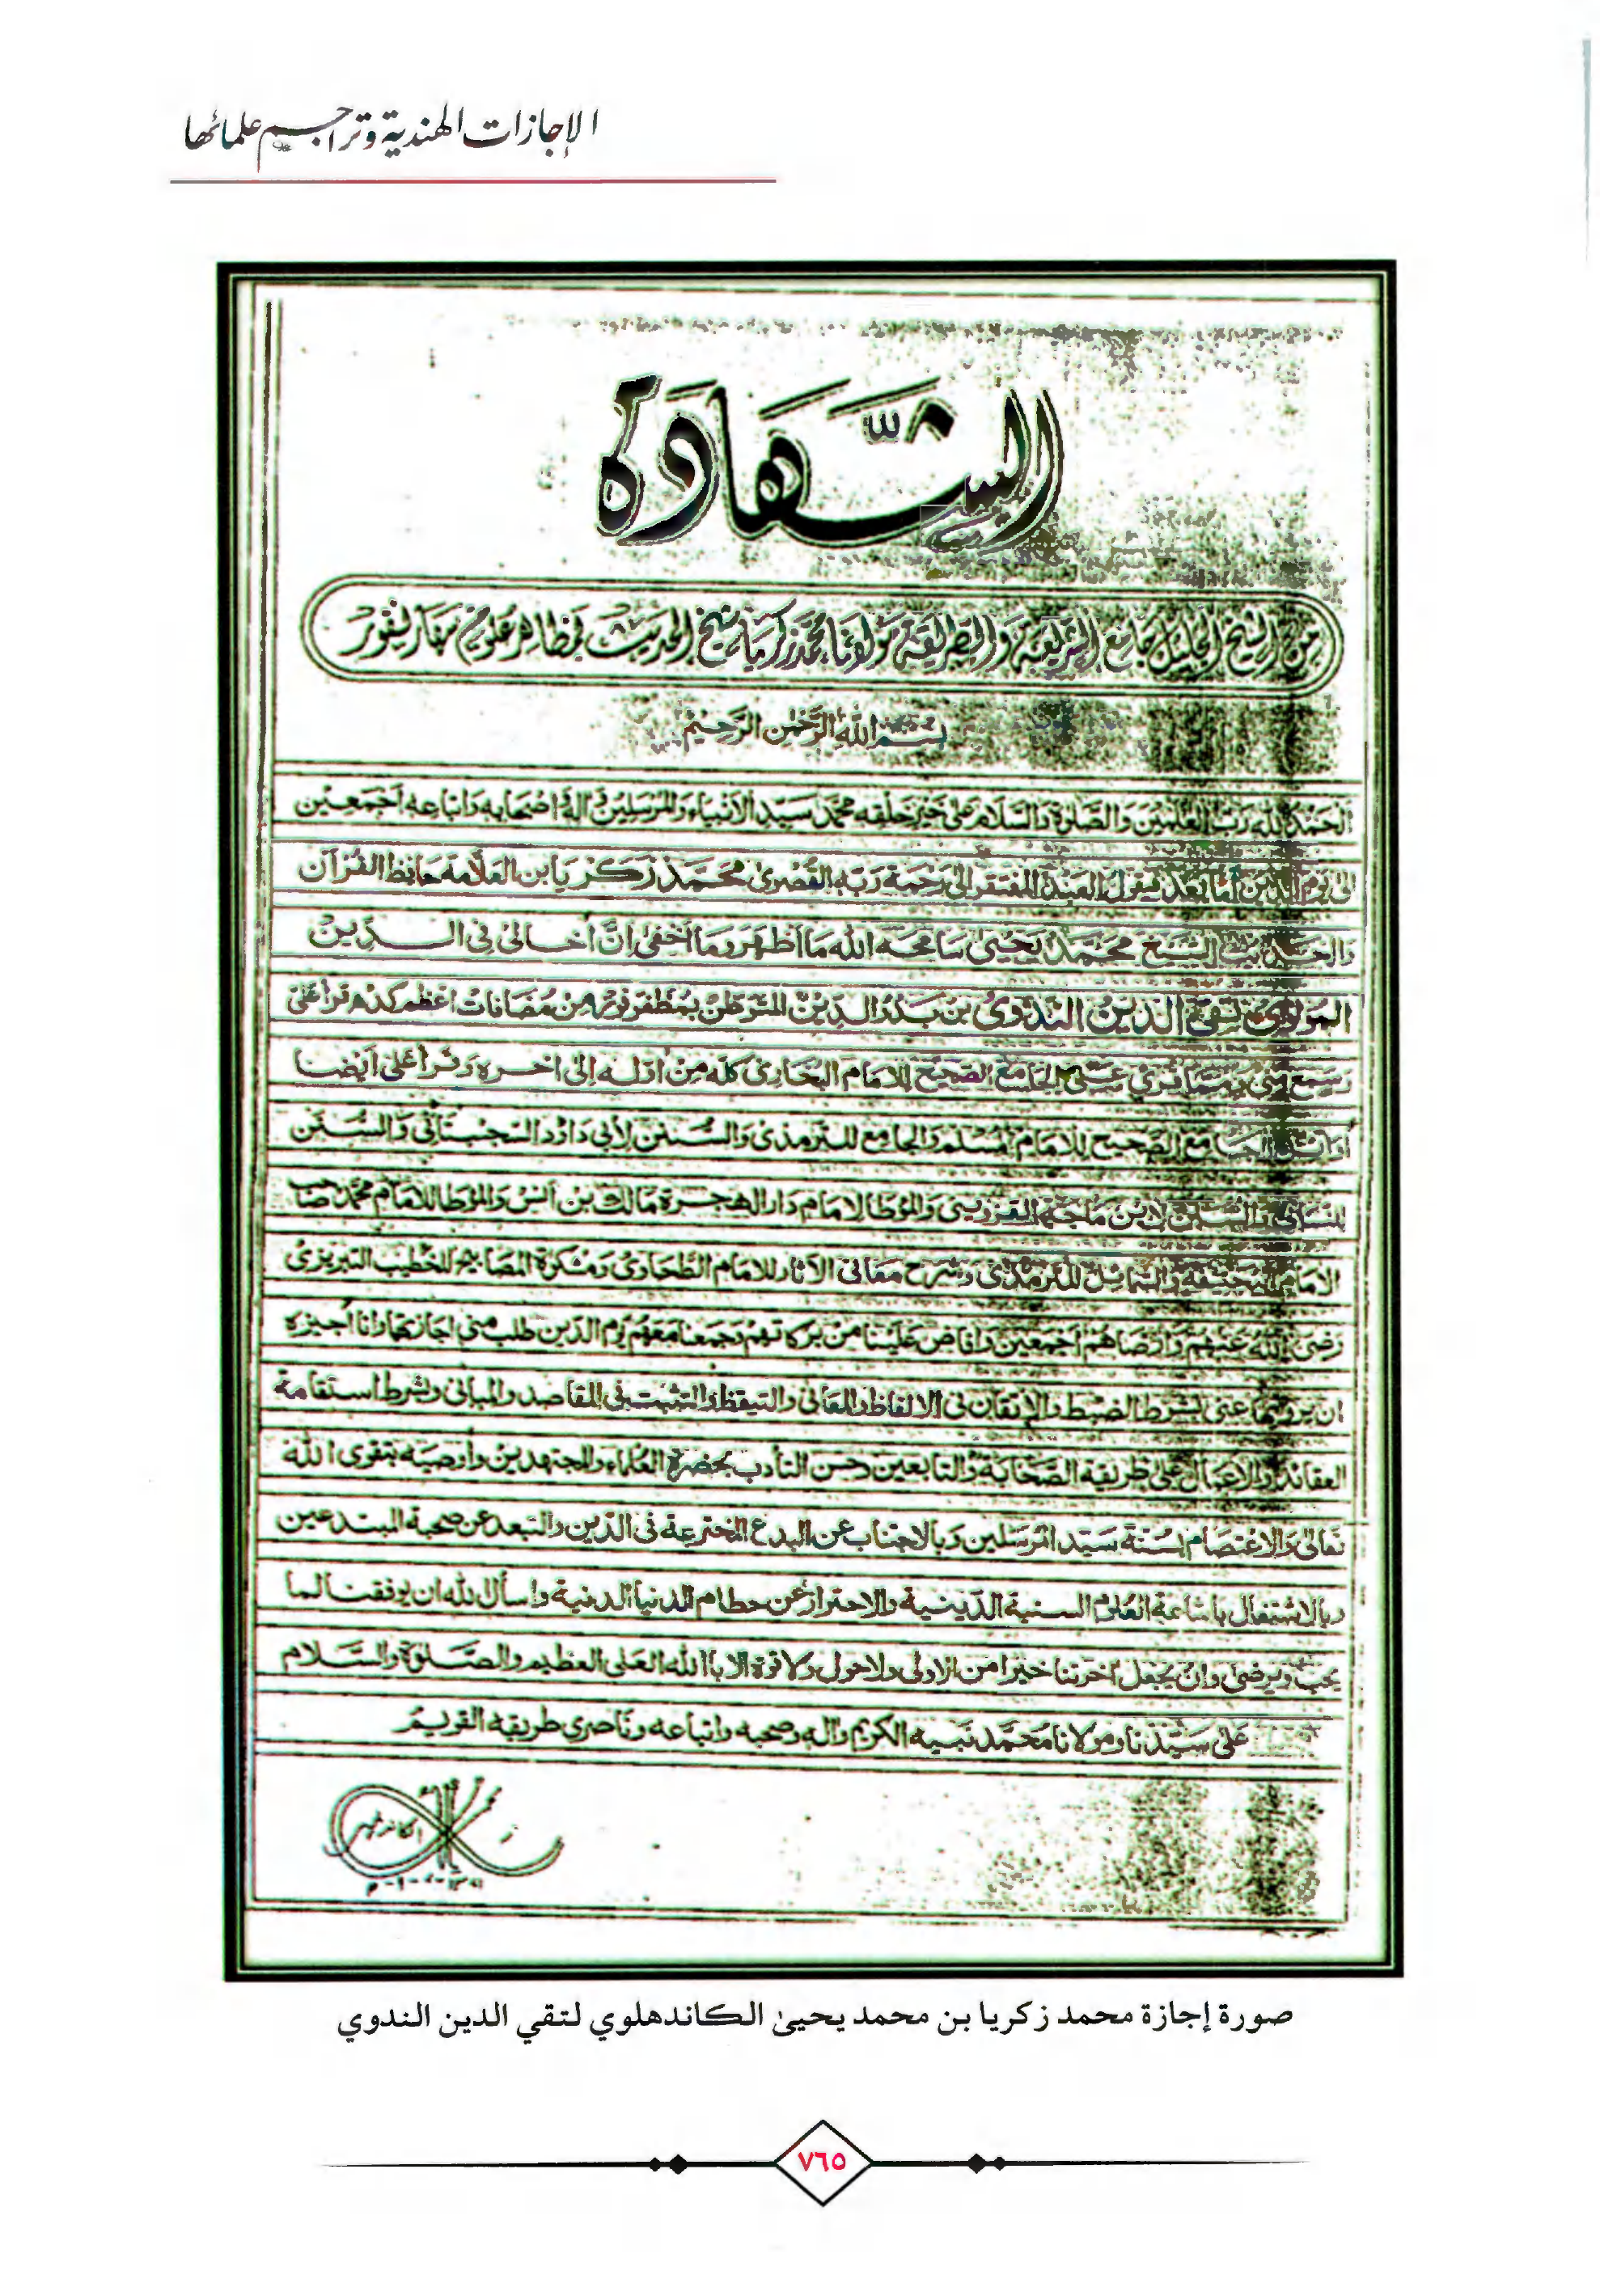 الإجازات الهندية وتراجم علمائها
الشهادة
من الشيخ الجليل جامع الشريعة والطريقة مولانا محمد زكريا شيخ الحديث في مظاهر علوم سهارنفور
بسم الله الرحمن الرحيم
الحمد لله رب العلمين والصلوة والسلام على خير خلقه محمد سيد الأنبياء والمرسلين وآله وأصحابه وأتباعه أجمعين
الى يوم الدين أما بعد فيقول العبد المفتقر الى رحمة ربه القصوى محمد زكريا بن العلامة حافظ القرآن
والحديث الشيخ محمد يحيى سامحه الله ما أظهر وما أخفى ان أخا لي في الدين
المولوي تقي الدين الندوي بن بدر الدين المتوطن بمظفرفور من مضافات اعظم كده قرأ علي
وسمع مني ومما قرئ علي الجامع الصحيح للامام البخاري كله من أوله إلى اخره وقرأ علي أيضا
أوائل الجامع الصحيح للامام المسلم والجامع للترمذي والسنن لأبي داود السجستاني والسنن
للنسائي والسنن لابن ماجه القزويني والمؤطا لامام دار الهجرة مالك بن انس والمؤطا للامام محمد صاحب
الامام ابي حنيفة والشمائل للترمذي وشرح معاني الآثار للامام الطحاوي ومشكوة المصابيح للخطيب التبريزي
رضي الله عنهم وارضاهم أجمعين وافاض علينا من بركاتهم وجمعنا معهم يوم الدين طلب مني اجازتها وانا أجيزه
ان يرويها عني بشرط الضبط والإتقان في الالفاظ والمعاني والتيقظ والتثبت في المقاصد والمباني وبشرط استقامة
العقائد والاعمال على طريقة الصحابة والتابعين وحسن التأدب بحضرة العلماء والمجتهدين وأوصيه بتقوى الله
تعالى والاعتصام بسنة سيد المرسلين وبالاجتناب عن البدع المخترعة في الدين والتبعد عن صحبة المبتدعين
وبالاشتغال باشاعة العلوم السنية الدينية والاحتراز عن حطام الدنيا الدنية واسأل الله ان يوفقنا لما
يحب ويرضى وان يجعل آخرتنا خيرا من الاولى ولا حول ولا قوة الا بالله العلي العظيم والصلوة والسلام
على سيدنا ومولانا محمد نبيه الكريم وآله وصحبه واتباعه وناصري طريقه القويم
محمد زكريا الكاندهلوي
صورة إجازة محمد زكريا بن محمد يحيىٰ الكاندهلوي لتقي الدين الندوي
٧٦٥